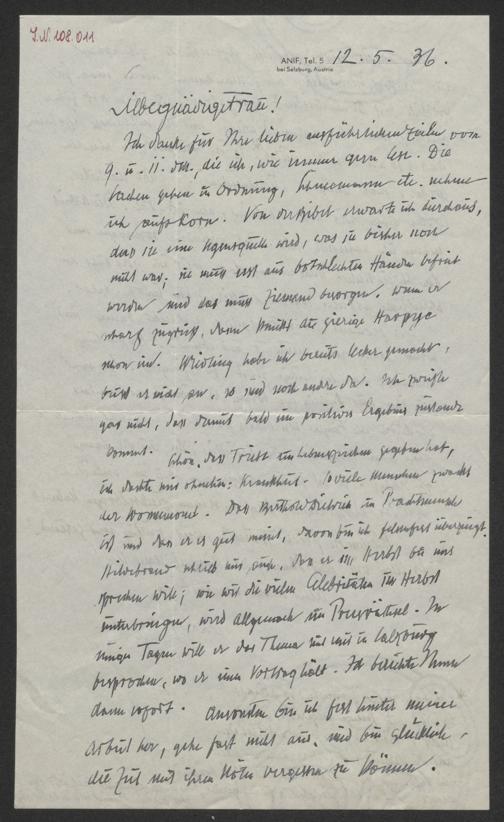 I.N. 108.011
ANIF, Tel. 5
bei Salzburg, Austria
12. 5. 36.
Allergnädigste Frau!
Ich danke für Ihre lieben ausführlichen Zeilen vom
9. u. 11. ds., die ich, wie immer gern lese. Die
Sachen gehen in Ordnung, etc. nehme
ich aufs Korn. Von der erwarte ich durchaus,
dass sie eine wird, was sie bisher noch
nicht war; sie muss erst aus Händen befreit
werden und das muss Jemand besorgen. Wenn er
scharf zugreift, dann die gierige Harpye
schon los. habe ich bereits lecker gemacht,
beisst er nicht an, so sind noch andre da. Ich zweifle
gar nicht, dass damit bald ein positives Ergebnis zustande
kommt.
Schön, dass Triebt ein Lebenszeichen gegeben hat,
ich dachte mir ohnehin: Krankheit. So viele Menschen
der . Dass Berthold Dietrich ein Prachtmensch
ist und dass er es gut meint, davon bin ich felsenfest überzeugt.
Hildebrand schrieb mir auch, dass er im Herbst bei uns
sprechen will; wie wir die vielen Celebritäten im Herbst
unterbringen, wird allgemach ein . In
einigen Tagen will er das Thema mit mir in Salzburg
besprechen, wo er einen Vortrag hält. Ich berichte Ihnen
dann sofort. Ansonsten bin ich fest hinter meiner
Arbeit her, gehe fast nicht aus, und bin glücklich,
die Zeit mit ihren Nöten vergessen zu können.